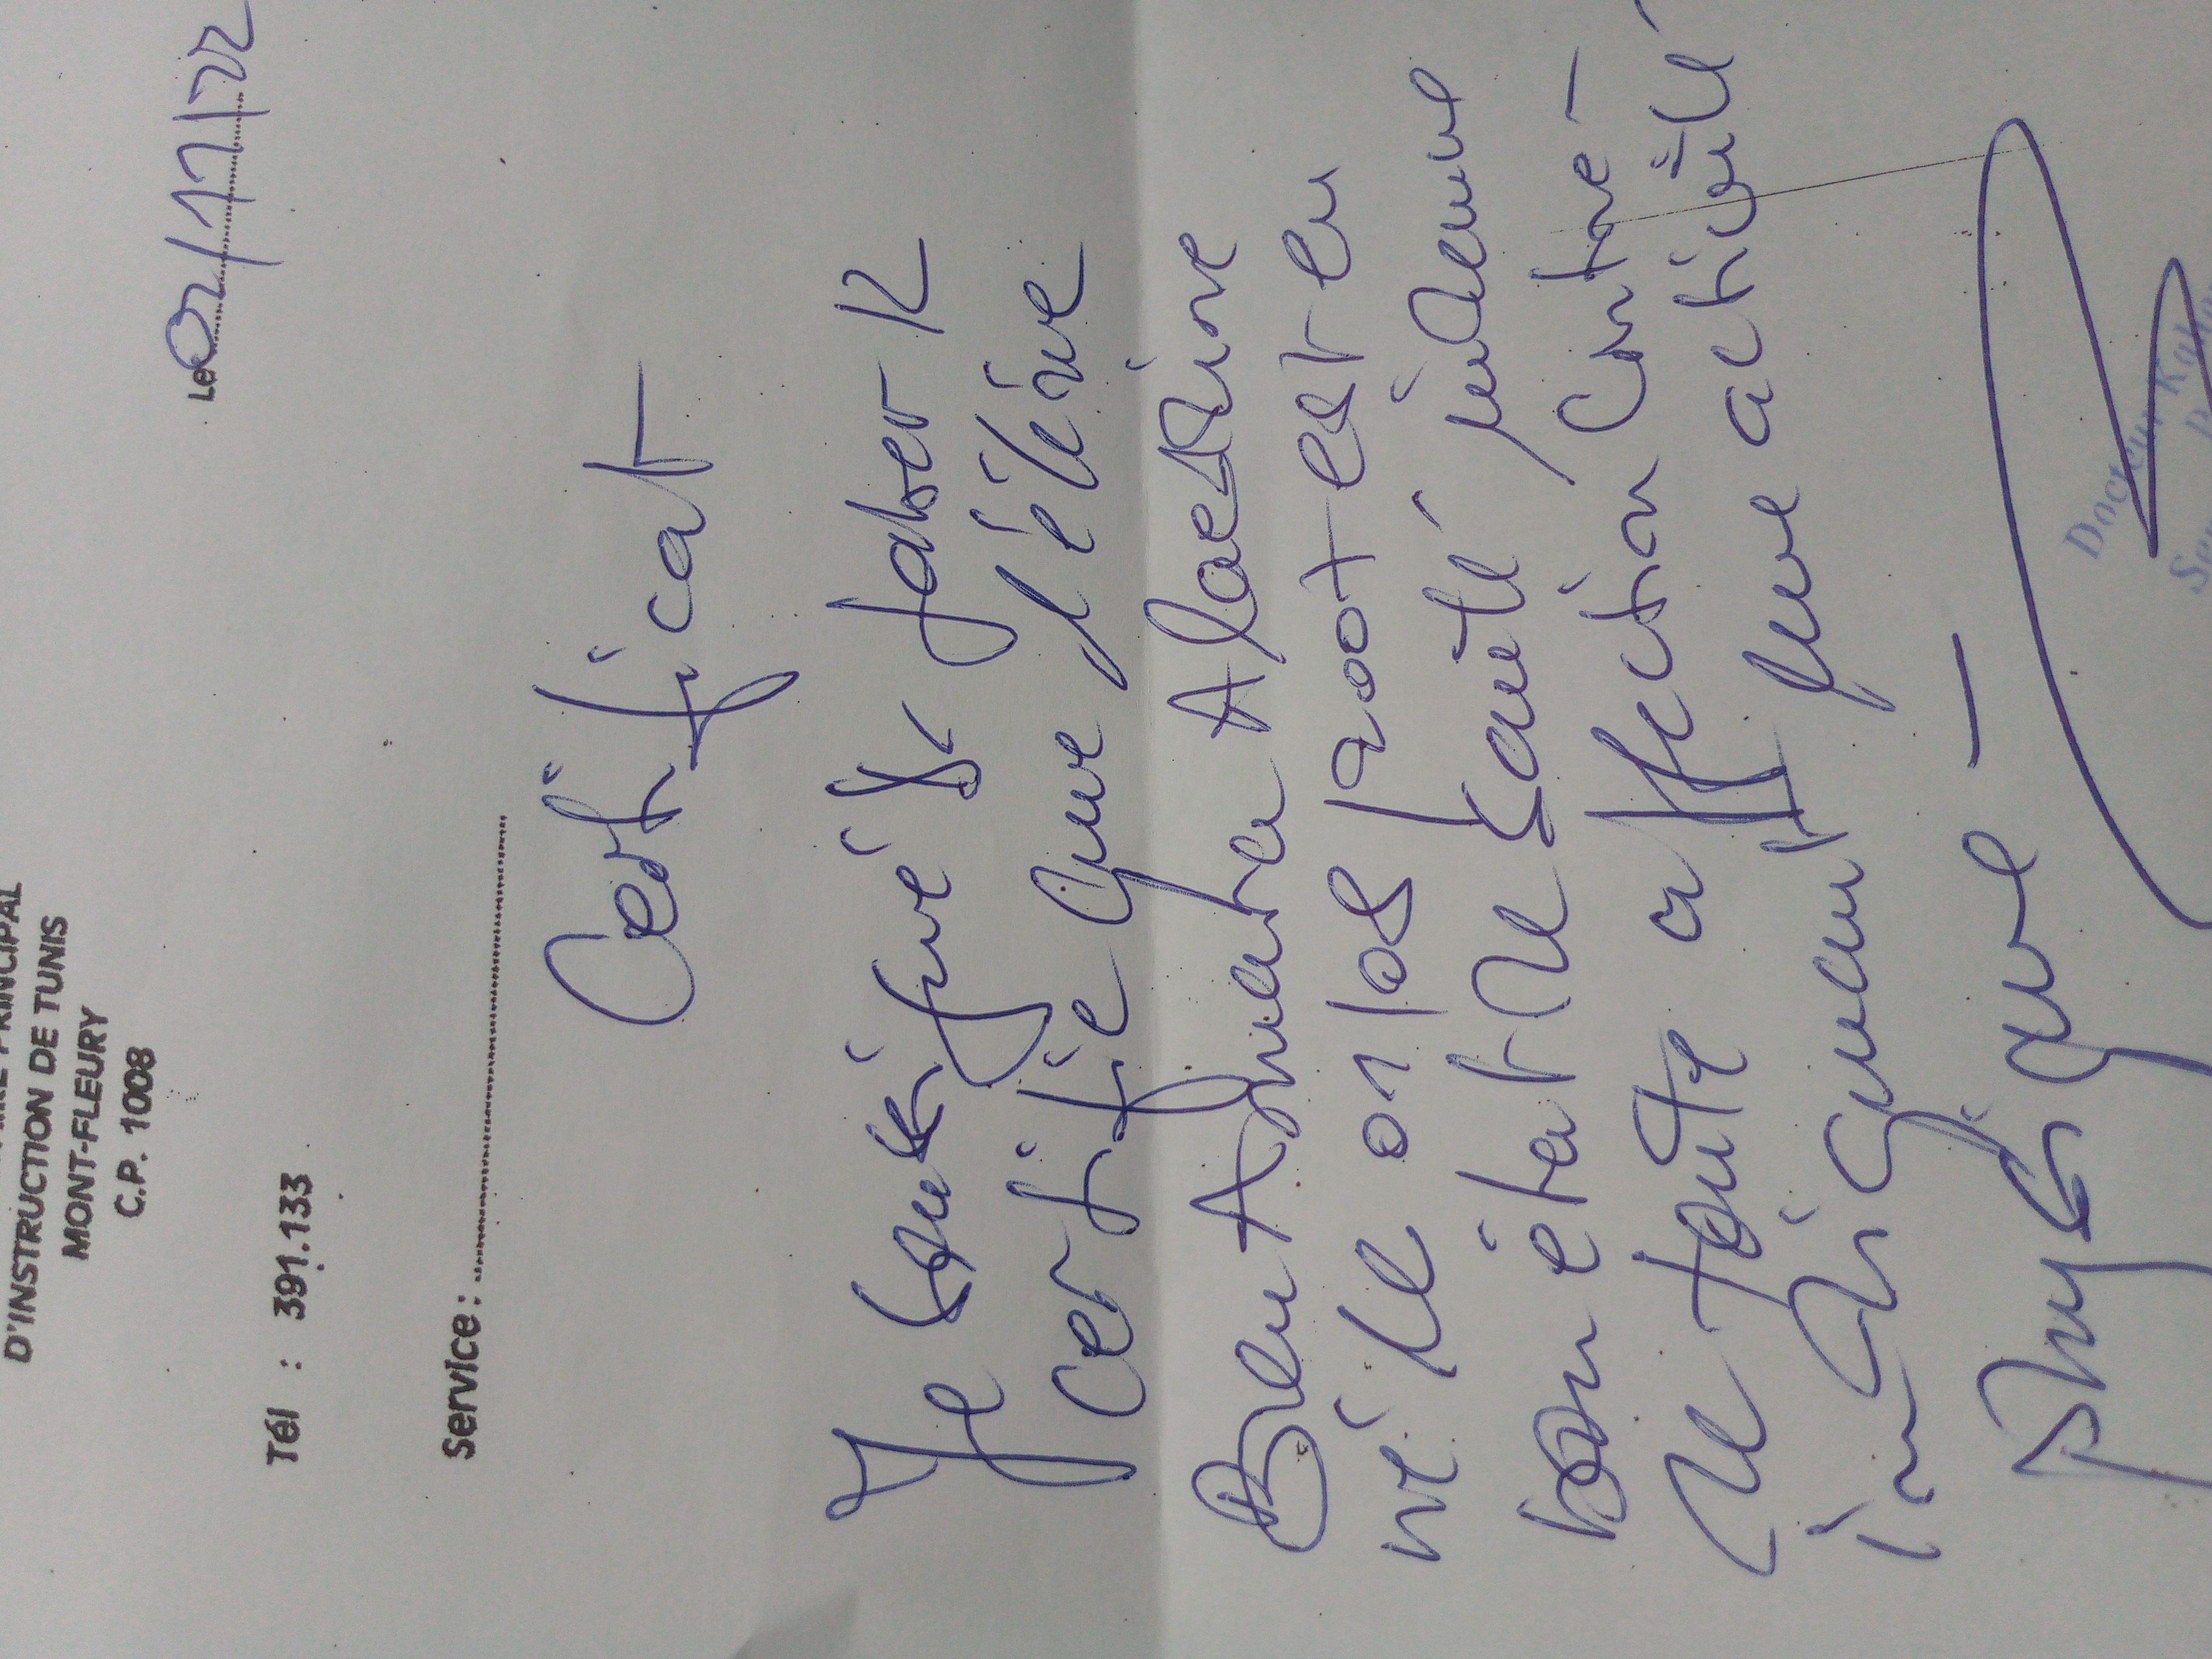 PRINCIPAL
D'INSTRUCTION DE TUNIS
MONT-FLEURY
C.P. 1008
Le 02/11/22
Tél : 391.133
Service :
Certificat
Je soussigné Dr Jaber K
certifie que l'élève
Ben Amara Alaeddine
né le 01/08/2007 est en
bon état de santé indemne
de toute affection contre-
indiquant une activité
physique
Docteur